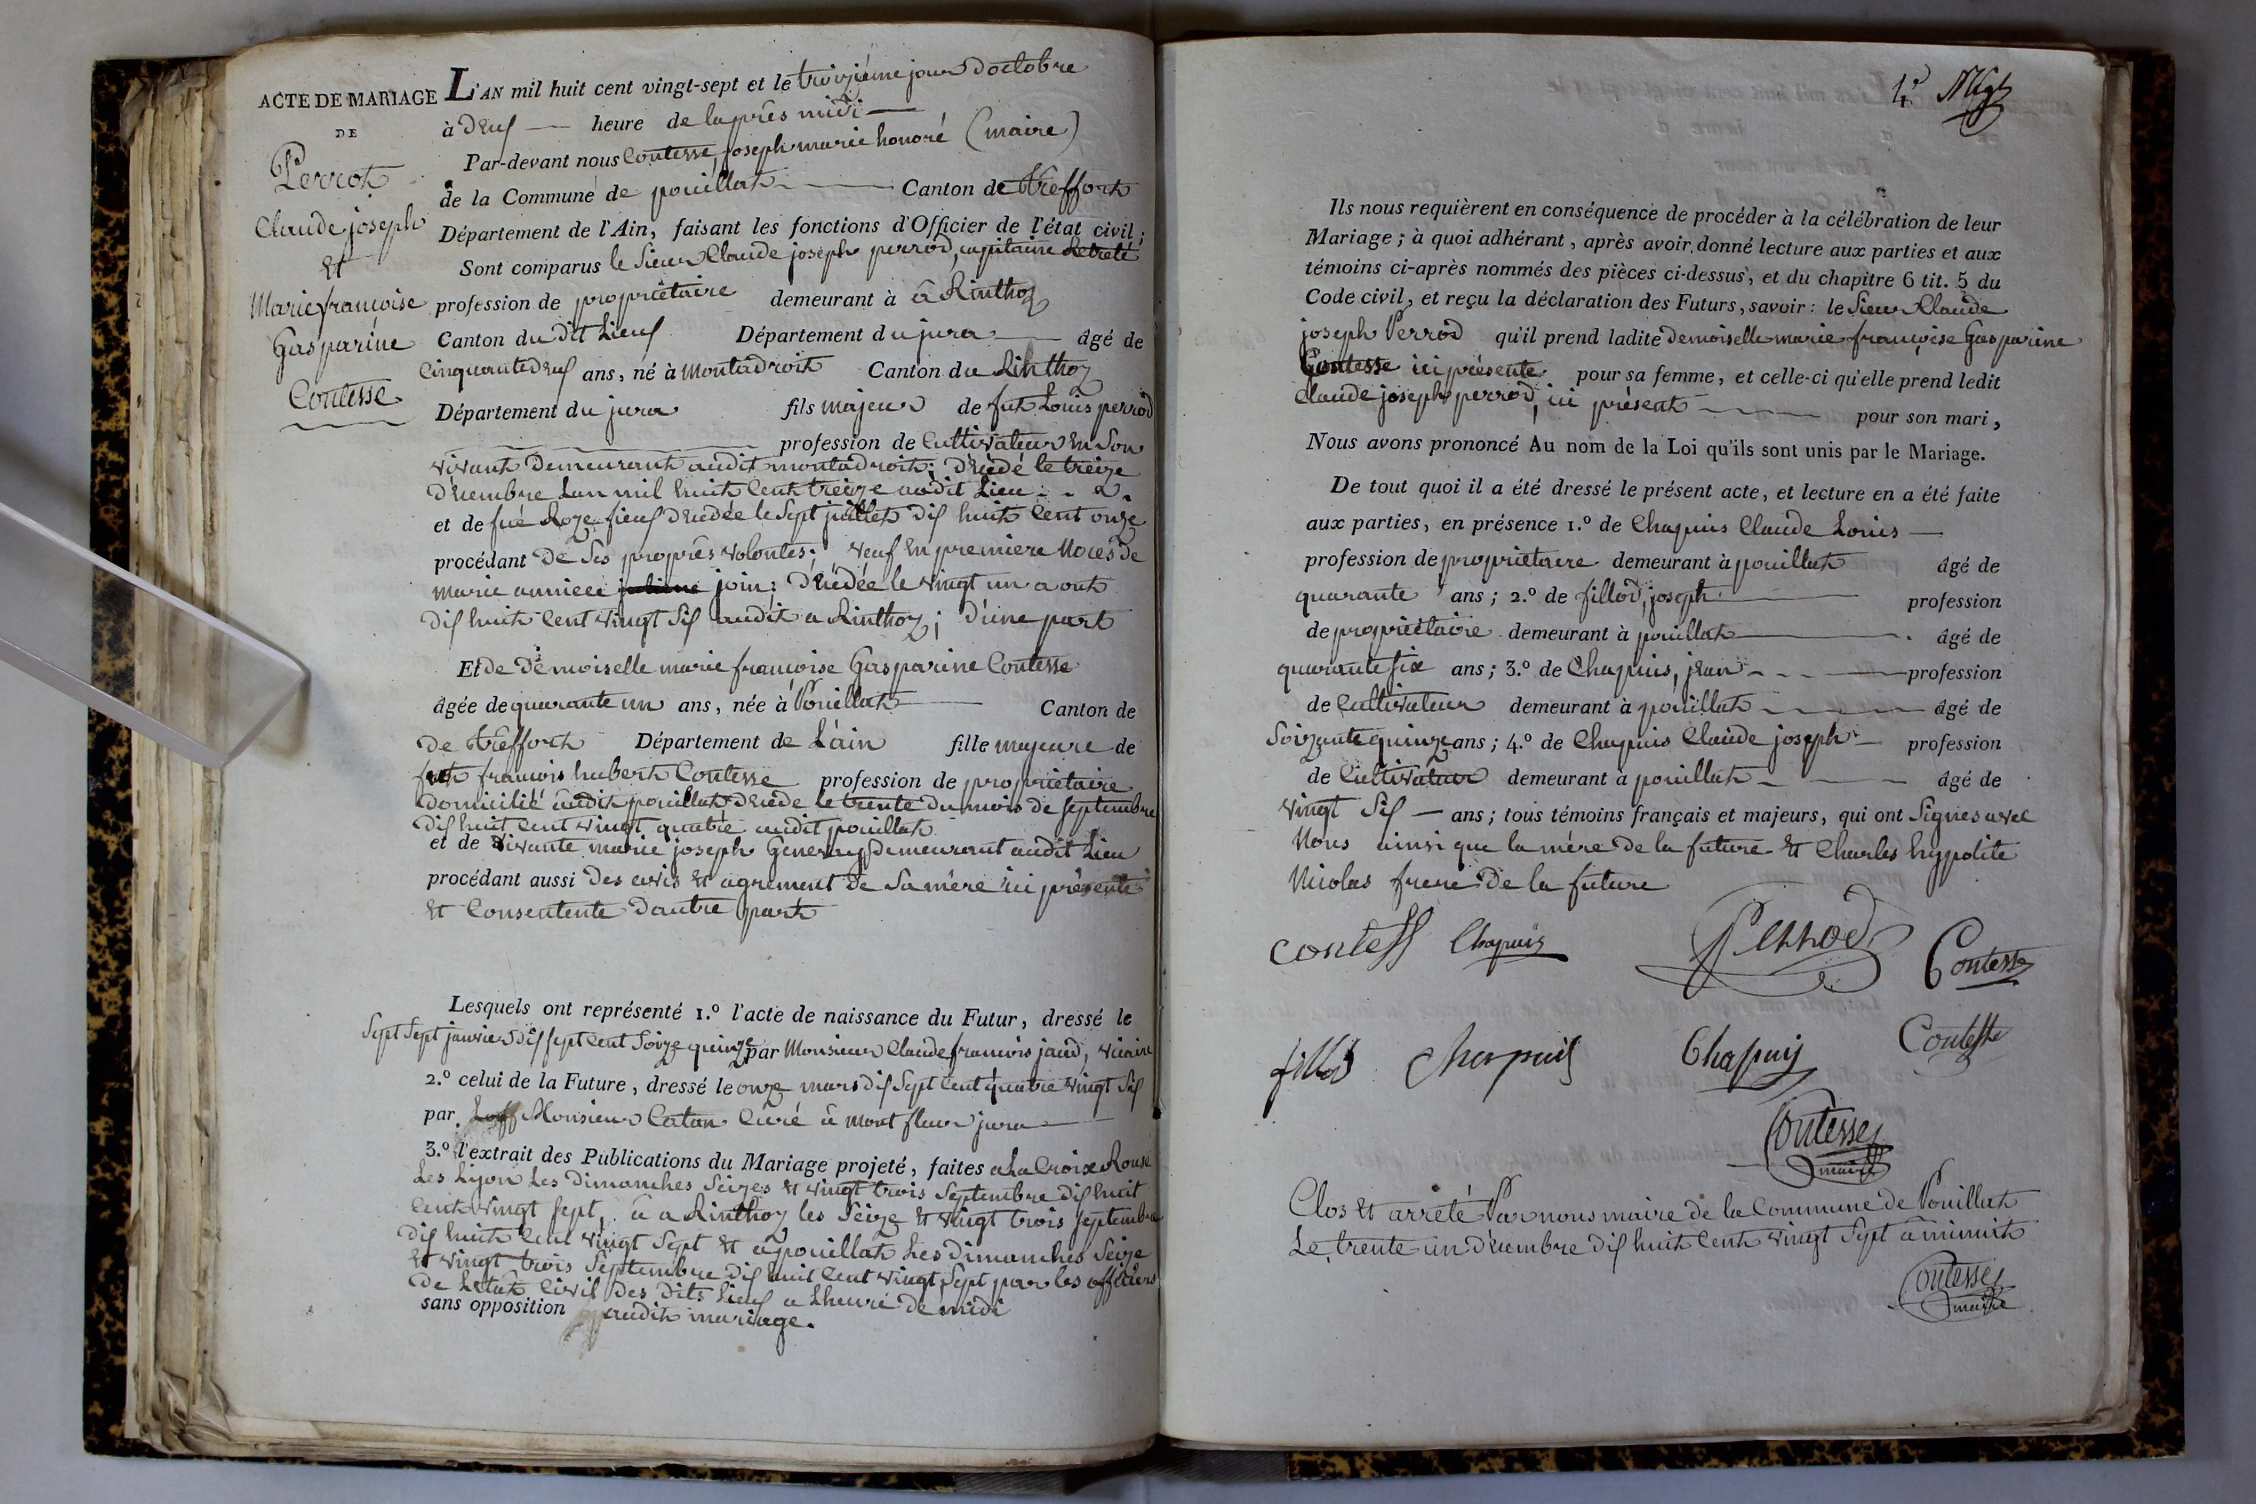 ACTE DE MARIAGE
DE
Perrot
Claude joseph
et
Marie françoise
Gasparine
Contesse
L'AN mil huit cent vingt-sept et le troizième jour doctobre
à deux heure de laprès midi
Par-devant nous Contesse, joseph marie honoré (maire)
de la Commune de pouillat Canton de Treffort
Département de l'Ain, faisant les fonctions d'Officier de l'état civil;
Sont comparus le Sieur Claude joseph perrod, capitaine Retreté
profession de propriétaire demeurant à à Rinthoz
Canton du dit Lieux Département du jura âgé de
Cinquantedeux ans, né à Montadroit Canton du Rinthoz
Département du jura fils majeur de fut Louis perrod
profession de Cultivateur en Son
vivant Demeurant audit montadroit; décédé le treize
décembre Lan mil huit Cent treize audit Lieu
et de fue Roze fieux décédée le Sept juillet dix huit Cent onze
procédant de Ses propres volontés; veuf en premiere Noces de
marie join; décédée le vingt un aout
dix huit Cent vingt Six audit a Rinthoz; d'une part
Et de demoiselle marie françoise Gasparine Contesse
âgée de quarante un ans, née à Pouillat Canton de
de Treffort Département de L'ain fille majeure de
fut françois hubert Contesse profession de propriétaire
domicilié audit pouillat décédé le trente du mois de Septembre
dix huit Cent vingt quatre audit pouillat
et de vivante marie joseph Demeurant audit Lieu
procédant aussi des avis et agrement de Sa mère ici présente
et Consentente d'autre part
Lesquels ont représenté 1.º l'acte de naissance du Futur, dressé le
Sept janvier dix Sept Cent Soize quinze par Monsieur Claude françois jaud, vicaire
2.º celui de la Future, dressé le onze mars dix Sept Cent quatre vingt Six
par Monsieur Catan Curé à mont fleur jura
3.º l'extrait des Publications du Mariage projeté, faites a La Croix Rouse
Les Lyon Les dimanches Seizes et vingt trois Septembre dix huit
Cent vingt Sept, à a Rinthoz les Seize et vingt trois Septembre
dix huit Cent vingt Sept et à pouillat Les dimanches Seize
et vingt trois Septembre dix huit Cent vingt Sept par les officiers
de Letat Civil des dits Lieux a Lheure de midi
sans opposition audit mariage.
Ils nous requièrent en conséquence de procéder à la célébration de leur
Mariage; à quoi adhérant, après avoir donné lecture aux parties et aux
témoins ci-après nommés des pièces ci-dessus, et du chapitre 6 tit. 5 du
Code civil, et reçu la déclaration des Futurs, savoir: le Sieur Claude
joseph Perrod qu'il prend ladite demoiselle marie françoise Gasparine
Contesse ici présente pour sa femme, et celle-ci qu'elle prend ledit
Claude joseph perrod, ici présent pour son mari,
Nous avons prononcé Au nom de la Loi qu'ils sont unis par le Mariage.
De tout quoi il a été dressé le présent acte, et lecture en a été faite
aux parties, en présence 1.º de Chapuis Claude Louis
profession de propriétaire demeurant à pouillat âgé de
quarante ans; 2.º de fillod, joseph profession
de propriétaire demeurant à pouillat âgé de
quarante six ans; 3.º de Chapuis, jean profession
de Cultivateur demeurant à pouillat âgé de
Soizante quinze ans; 4.º de Chapuis Claude joseph profession
de Cultivateur demeurant à pouillat âgé de
vingt Six ans; tous témoins français et majeurs, qui ont Signes avec
Nous ainsi que la mère de la future et Charles hyppolite
Nicolas frere de la future
contess Chapuis Perrod Contesse
fillod Chapuis Chapuis Contesse
Contesse
maire
Clos et arrêté Par nous maire de la Commune de Pouillat
Le trente un décembre dix huit Cent vingt Sept à minuit
Contesse
maire